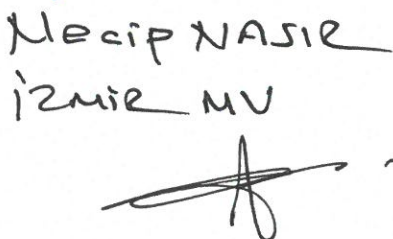 Necip NASIR
İZMİR MV